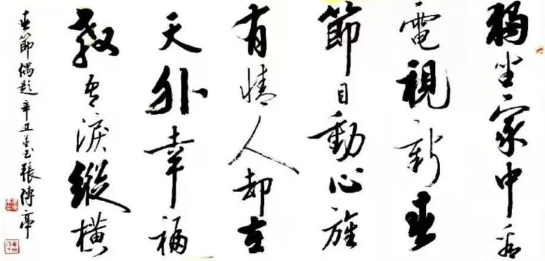 獨坐家中看
電視新春
節目動心旌
有情人却在
天外幸福
教淚縱橫
春節偶題辛丑張傳亭